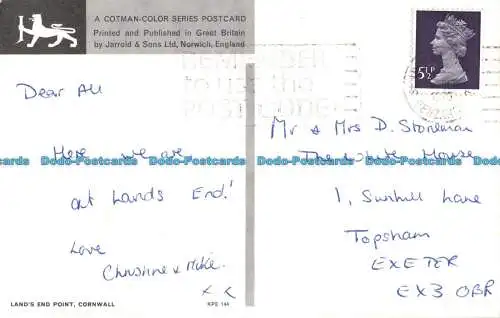 A COTMAN-COLOR SERIES POSTCARD
Printed and Published in Great Britain
by Jarrold & Sons Ltd, Norwich, England
REMEMBER
to use the
POSTCODE
5½P
Dear All
Here we are
at Lands End!
Love
Christine & Mike.
x x
Mr & Mrs D. Stoneman
The White House
1, Sunhill Lane
Topsham
EXETER
EX3 0BR
Dodo-Postcards Dodo-Postcards Dodo-Postcards Dodo-Postcards
LAND'S END POINT, CORNWALL
KPE 144